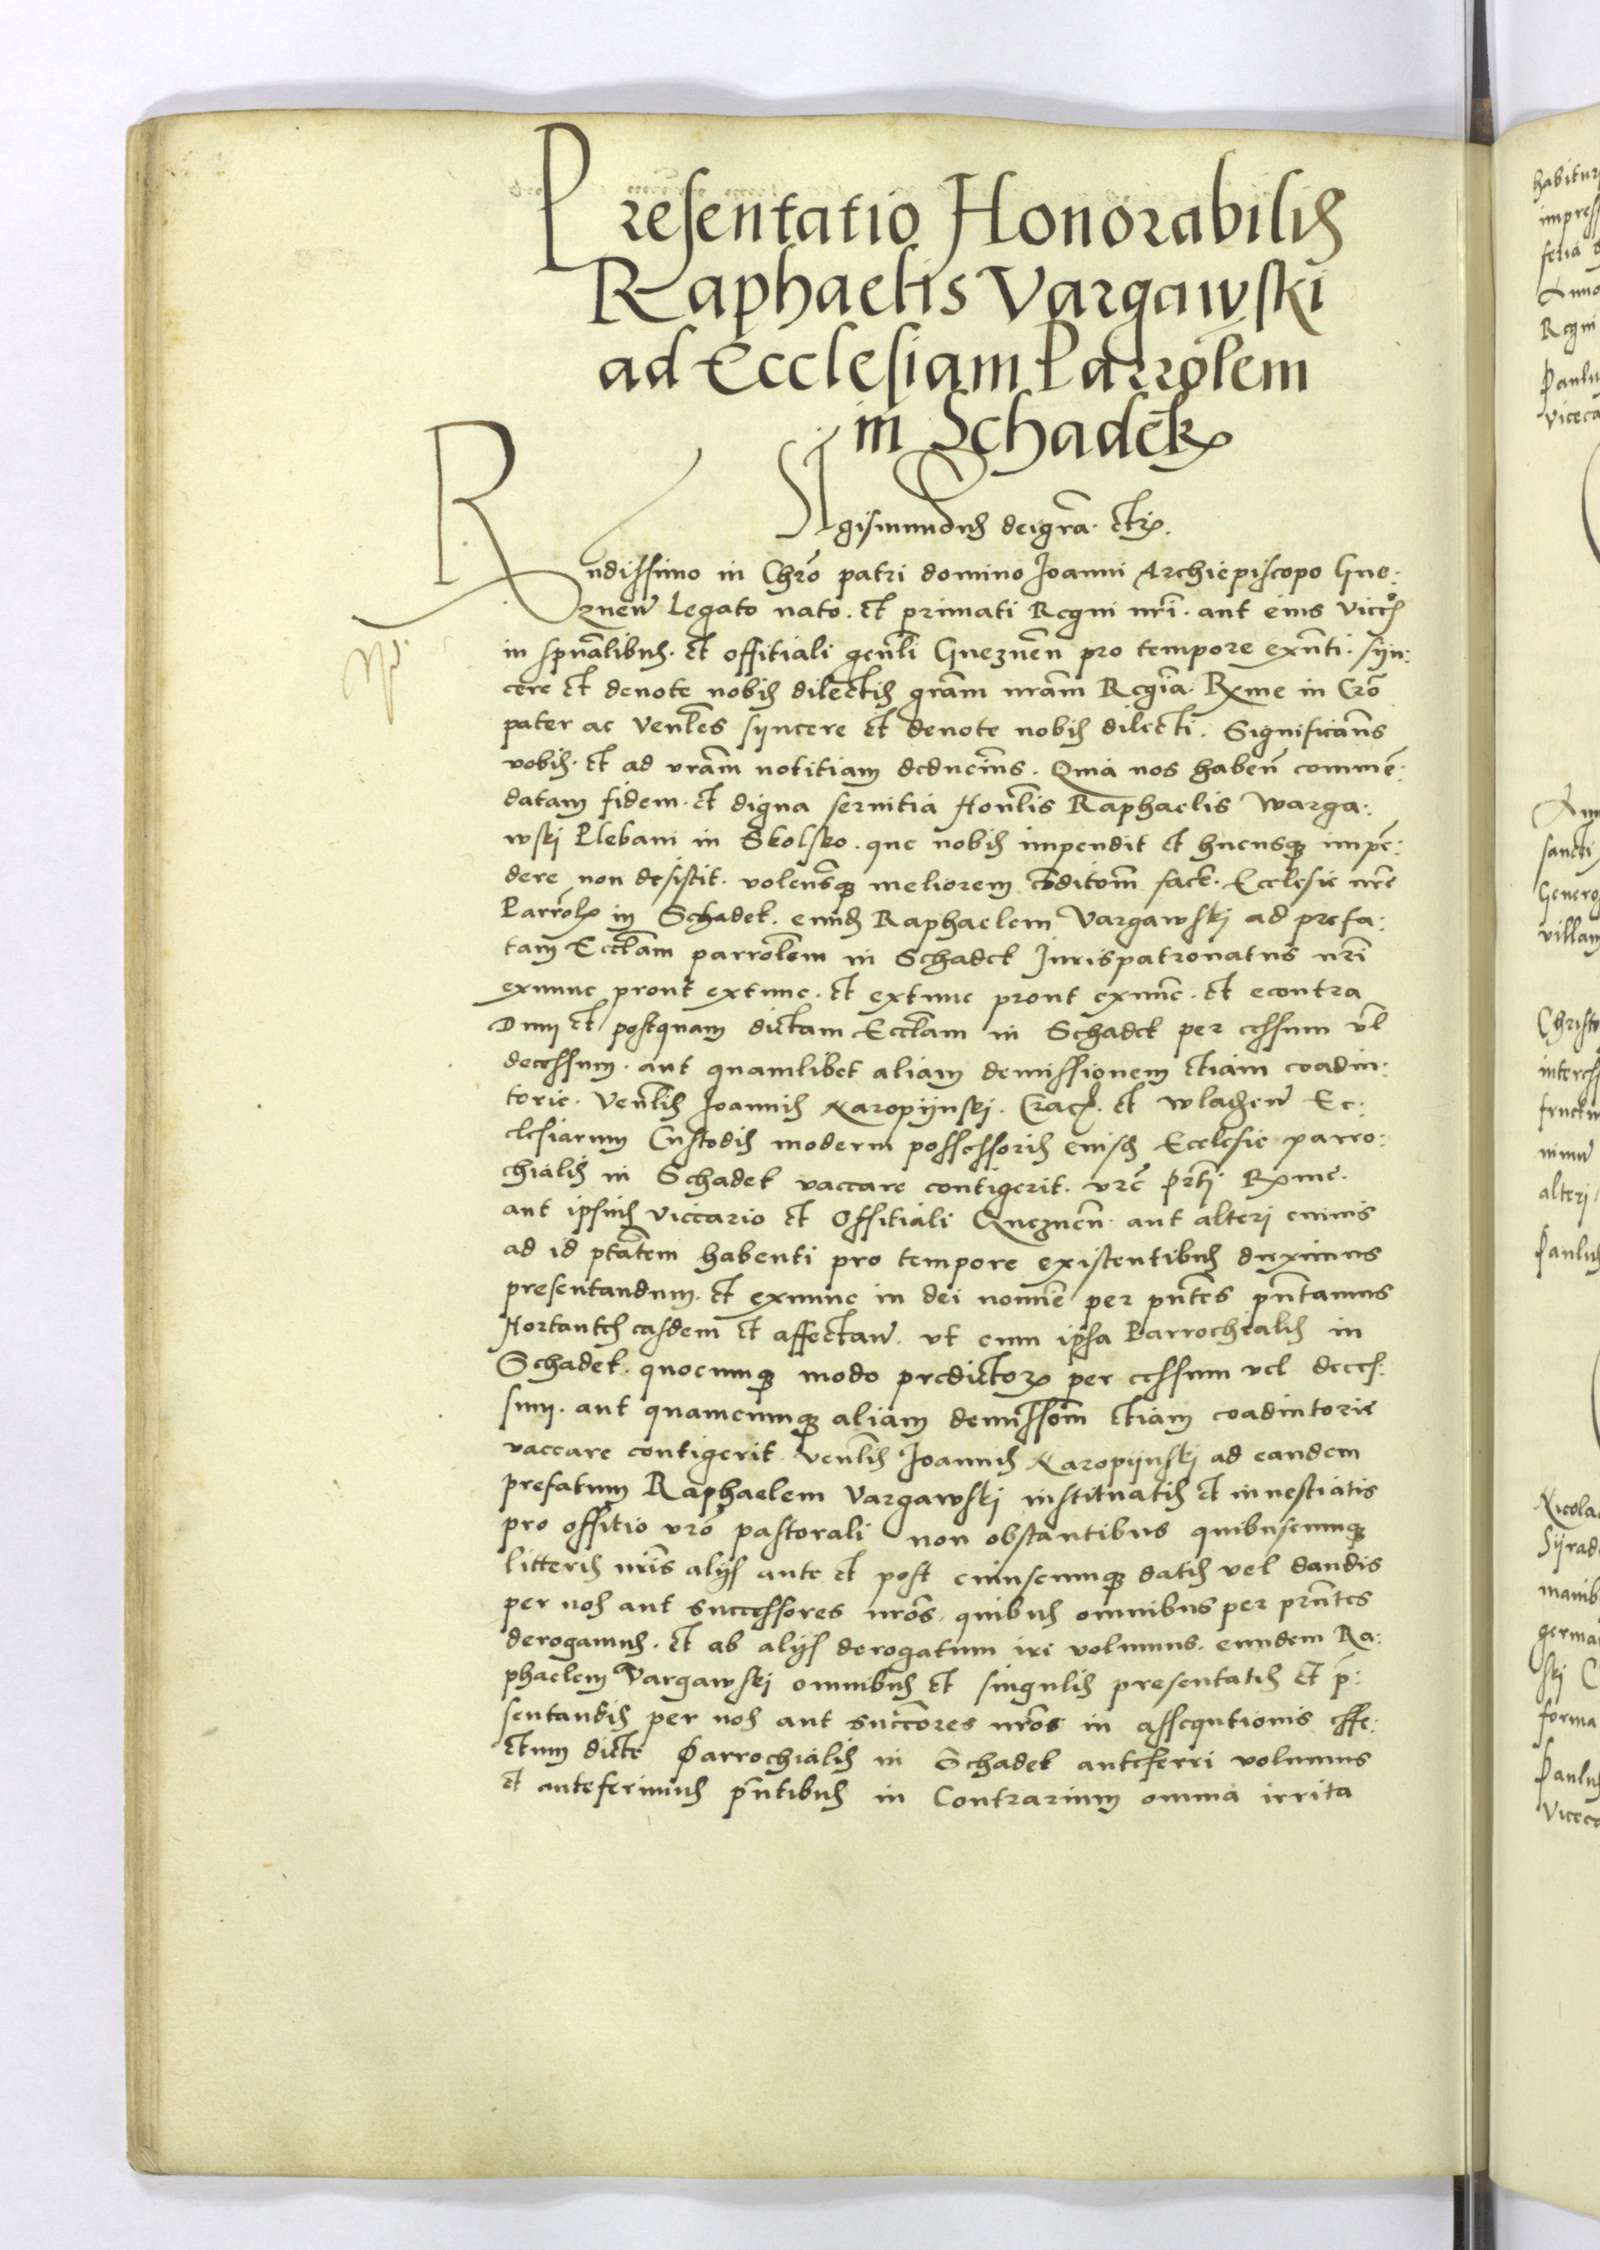 Presentatio Honorabilis
Raphaelis Vargawski
ad Ecclesiam Parrolem
in Schadek
Sigismundus dei gra. etc.
Rndissimo in Chro patri domino Joanni Archiepiscopo Gne:
znen Legato nato. et primati Regni nri. aut eius Viccro
in spualibus. et offitiali genli Gneznen pro tempore exnti. syn:
cere et deuote nobis dilectis gram nram Regia. Rxme in Cro
pater ac venles syncere et deuote nobis dilecti. Significams
vobis. et ad vram notitiam deducims. Quia nos haben comme:
datam fidem. et digna seruitia Honlis Raphaelis Warga:
wskj Plebani in Skolsko. que nobis impendit et hucusq impe:
dere non desistit. volensq meliorem conditom face. Ecclesie nre
Parrol in Schadek. eund Raphaelem Vargawskj ad prefa:
tam Ecclam parrolem in Schadek Jurispatronatus nri
exnunc prout extunc. et extunc prout exnunc. et econtra
Dum et postquam dictam Ecclam in Schadek per cessum vl
decessum. aut quamlibet aliam demissionem etiam coadiu:
torie. Venlis Joannis Karopijnskj. Crac. et Wladzen Ec:
clesiarum Custodis moderni possessoris eiusd Ecclesie parro:
chialis in Schadek vaccare contigerit. vre prti Rxme.
aut ipsius viccario et Offitiali Gneznen. aut alteri cuiuis
ad id ptatem habenti pro tempore existentibus duximus
presentandum. et exnunc in dei nomie per pntes pntamus
Hortantes easdem et affectan. vt cum ipsa Parrochialis in
Schadek. quocunq modo predictor per cessum vel deces:
sum. aut quamcunq aliam demissom etiam coadiutorie
vaccare contigerit venlis Joannis Karopijnskj ad eandem
prefatum Raphaelem Vargawskj instituatis et inuestiatis
pro offitio vro pastorali non obstantibus quibuscunq
litteris nris alijs ante et post cuiuscunq datis vel dandis
per nos aut successores nros. quibus omnibus per prntes
derogamus. et ab alijs derogatum iri volumus. eundem Ra:
phaelem Vargawskj omnibus et singulis presentatis et p:
sentandis per nos aut succores nros in assequtionis effe:
ctum dicte Parrochialis in Schadek anteferri volumus
et anteferimus pntibus in Contrarium omnia irrita